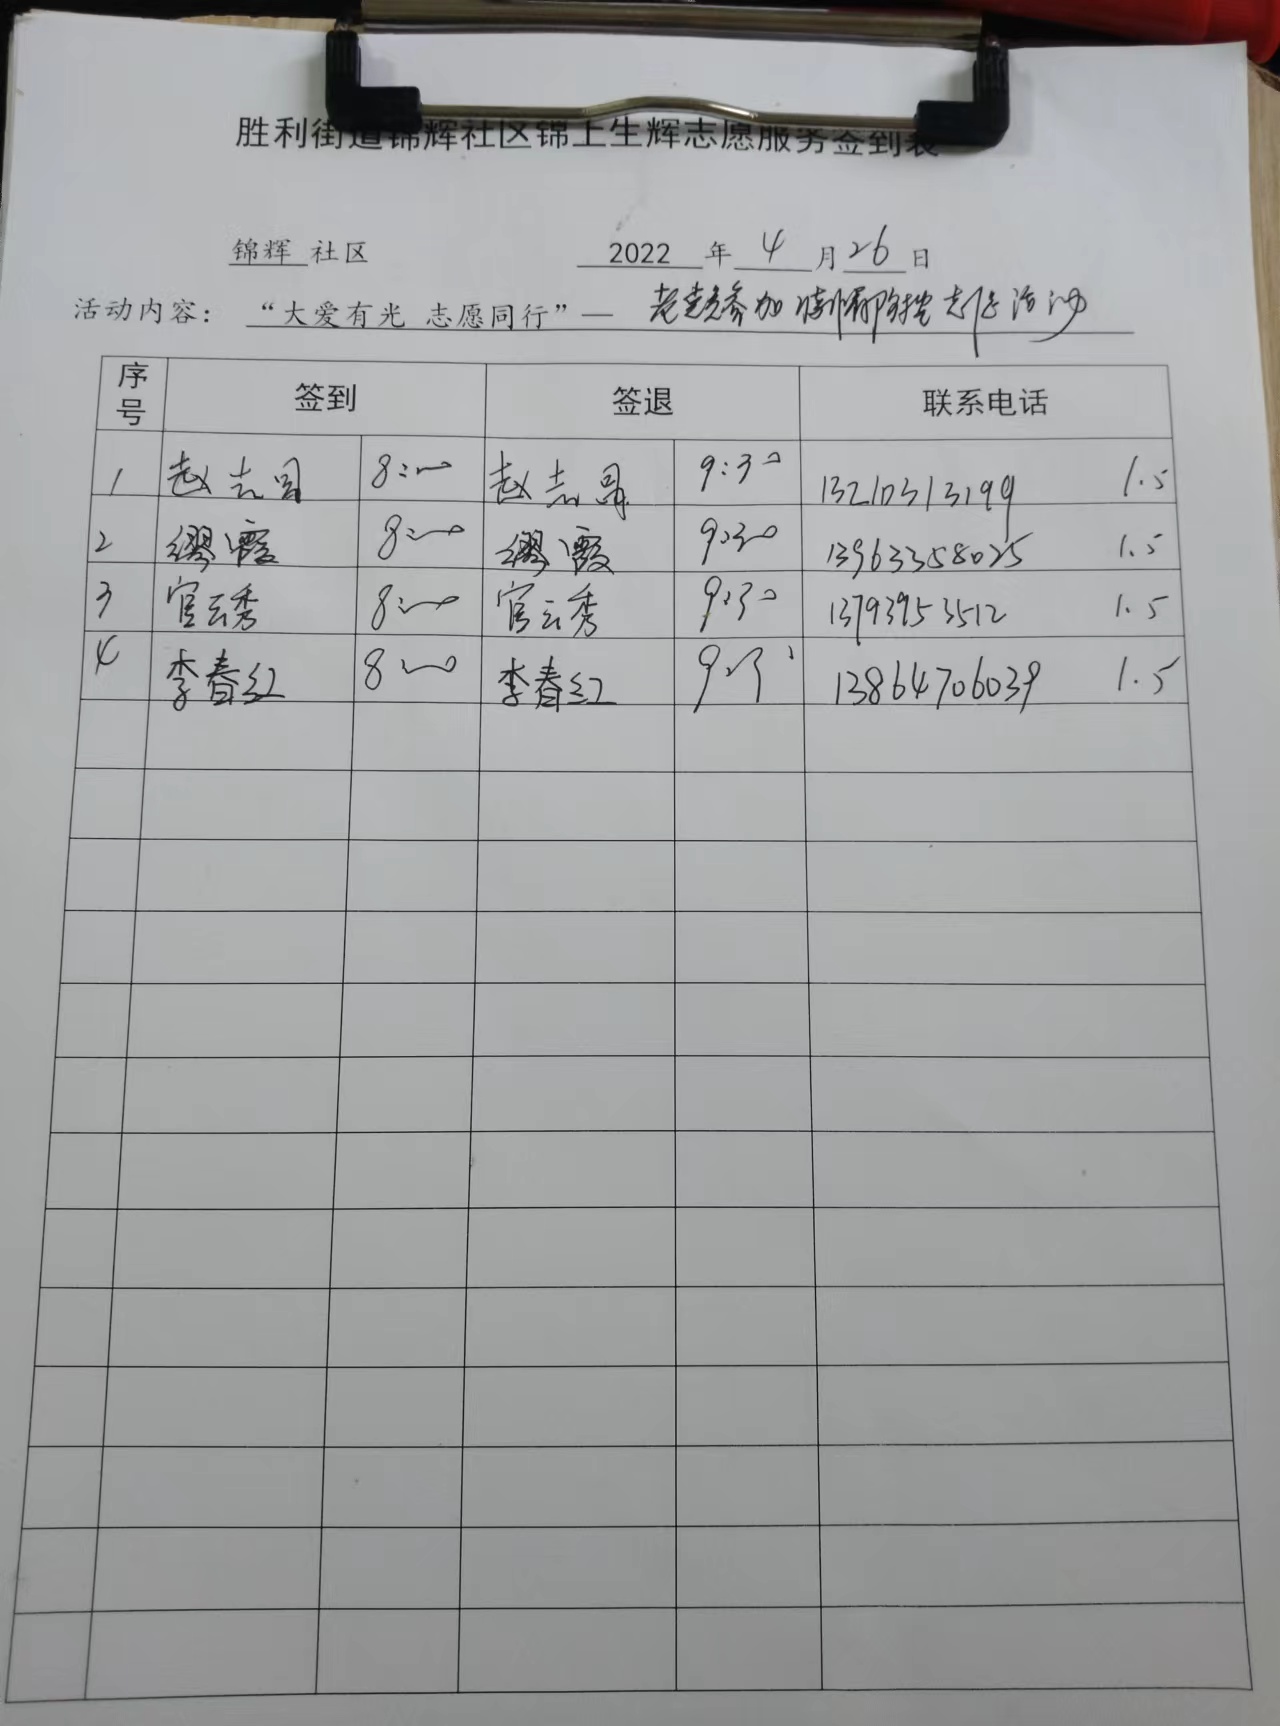 胜利街道锦辉社区锦上生辉志愿服务签到表
锦辉 社区 2022 年 4 月 26 日
活动内容： “大爱有光 志愿同行”— 老党员参加 防控志愿活动
序号 签到 签退 联系电话
1 赵志 8:00 赵志 9:30 13210313199 1.5
2 缪霞 8:00 缪霞 9:30 13963358025 1.5
3 官云秀 8:00 官云秀 9:30 13793953512 1.5
4 李春红 8:00 李春红 13864706039 1.5